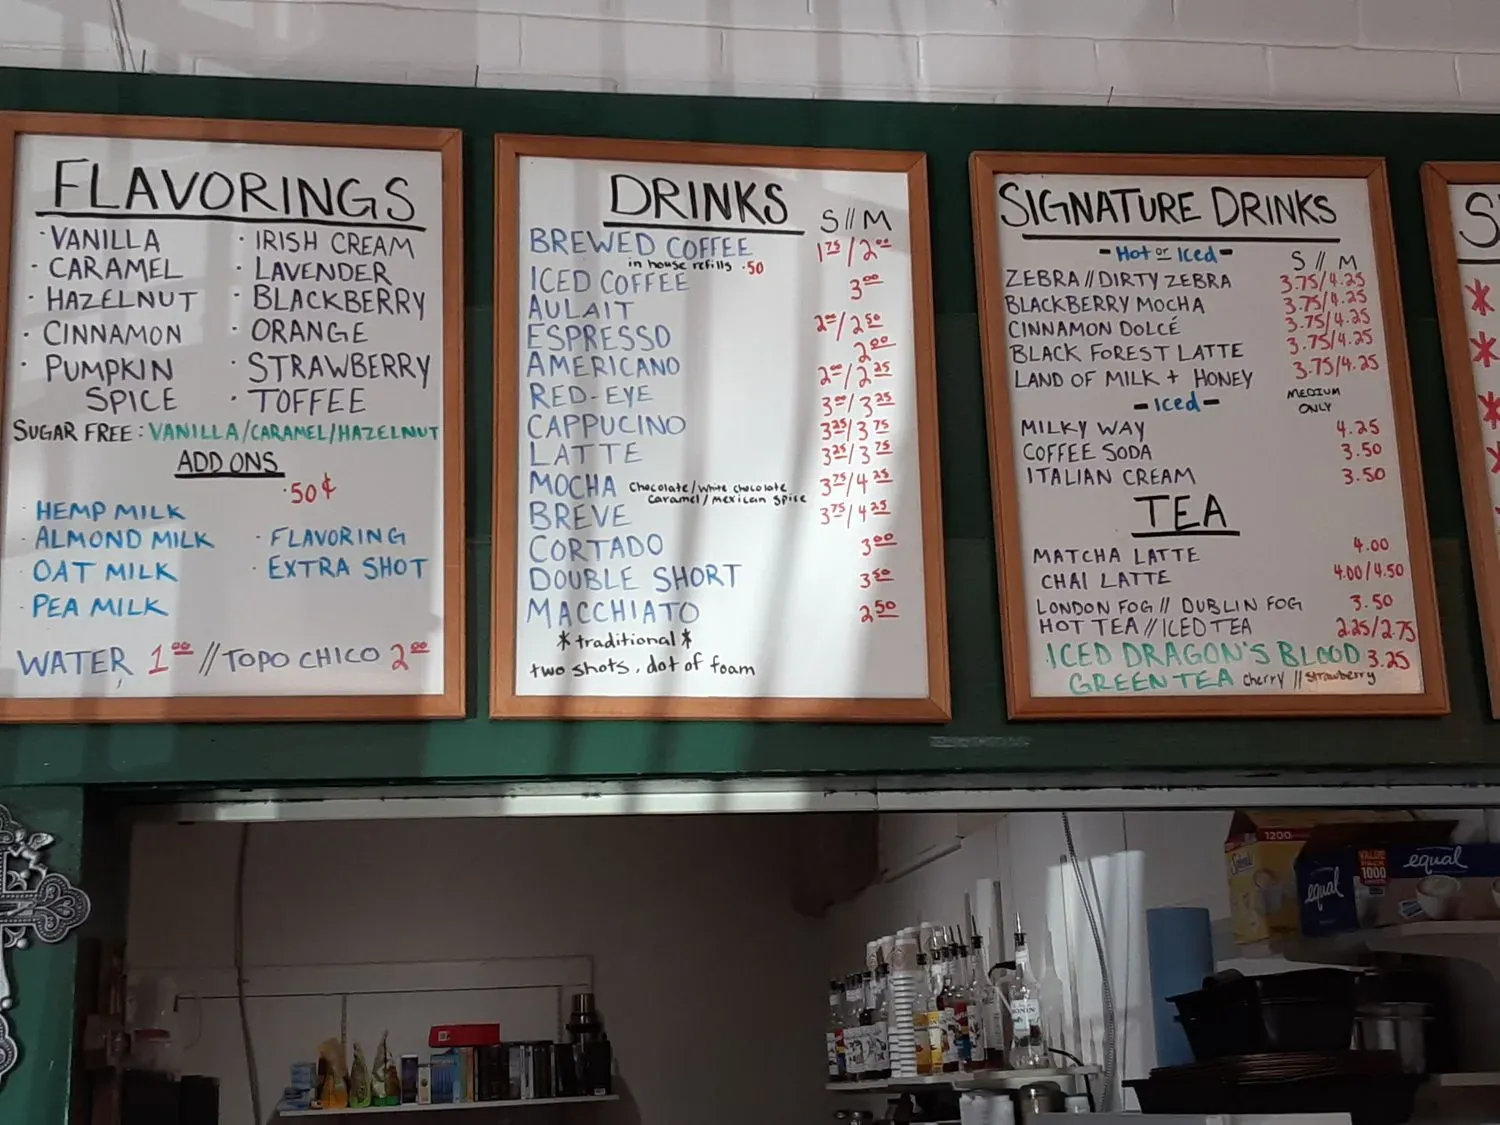 FLAVORINGS
· VANILLA
· CARAMEL
· HAZELNUT
· CINNAMON
· PUMPKIN
SPICE
· IRISH CREAM
· LAVENDER
· BLACKBERRY
· ORANGE
· STRAWBERRY
· TOFFEE
SUGAR FREE: VANILLA/CARAMEL/HAZELNUT
ADD ONS
.50¢
· HEMP MILK
· ALMOND MILK
· OAT MILK
· PEA MILK
· FLAVORING
· EXTRA SHOT
WATER 1.00 // TOPO CHICO 2.00
DRINKS S // M
BREWED COFFEE 1.75 / 2.00
in house refills .50
ICED COFFEE 3.00
AULAIT 2.00 / 2.50
ESPRESSO 2.00
AMERICANO 2.00 / 2.25
RED-EYE 3.00 / 3.25
CAPPUCINO 3.25 / 3.75
LATTE 3.25 / 3.75
MOCHA chocolate/white chocolate 3.75 / 4.25
caramel/mexican spice
BREVE 3.75 / 4.25
CORTADO 3.00
DOUBLE SHORT 3.50
MACCHIATO 2.50
* traditional *
two shots, dot of foam
SIGNATURE DRINKS
- Hot or Iced - S // M
ZEBRA // DIRTY ZEBRA 3.75/4.25
BLACKBERRY MOCHA 3.75/4.25
CINNAMON DOLCÉ 3.75/4.25
BLACK FOREST LATTE 3.75/4.25
LAND OF MILK + HONEY 3.75/4.25
- Iced - MEDIUM
ONLY
MILKY WAY 4.25
COFFEE SODA 3.50
ITALIAN CREAM 3.50
TEA
MATCHA LATTE 4.00
CHAI LATTE 4.00/4.50
LONDON FOG // DUBLIN FOG 3.50
HOT TEA // ICED TEA 2.25/2.75
ICED DRAGON'S BLOOD 3.25
GREEN TEA cherry // strawberry
S
*
*
*
*
1200
Splenda
equal
VALUE
PACK
1000
equal
MONIN